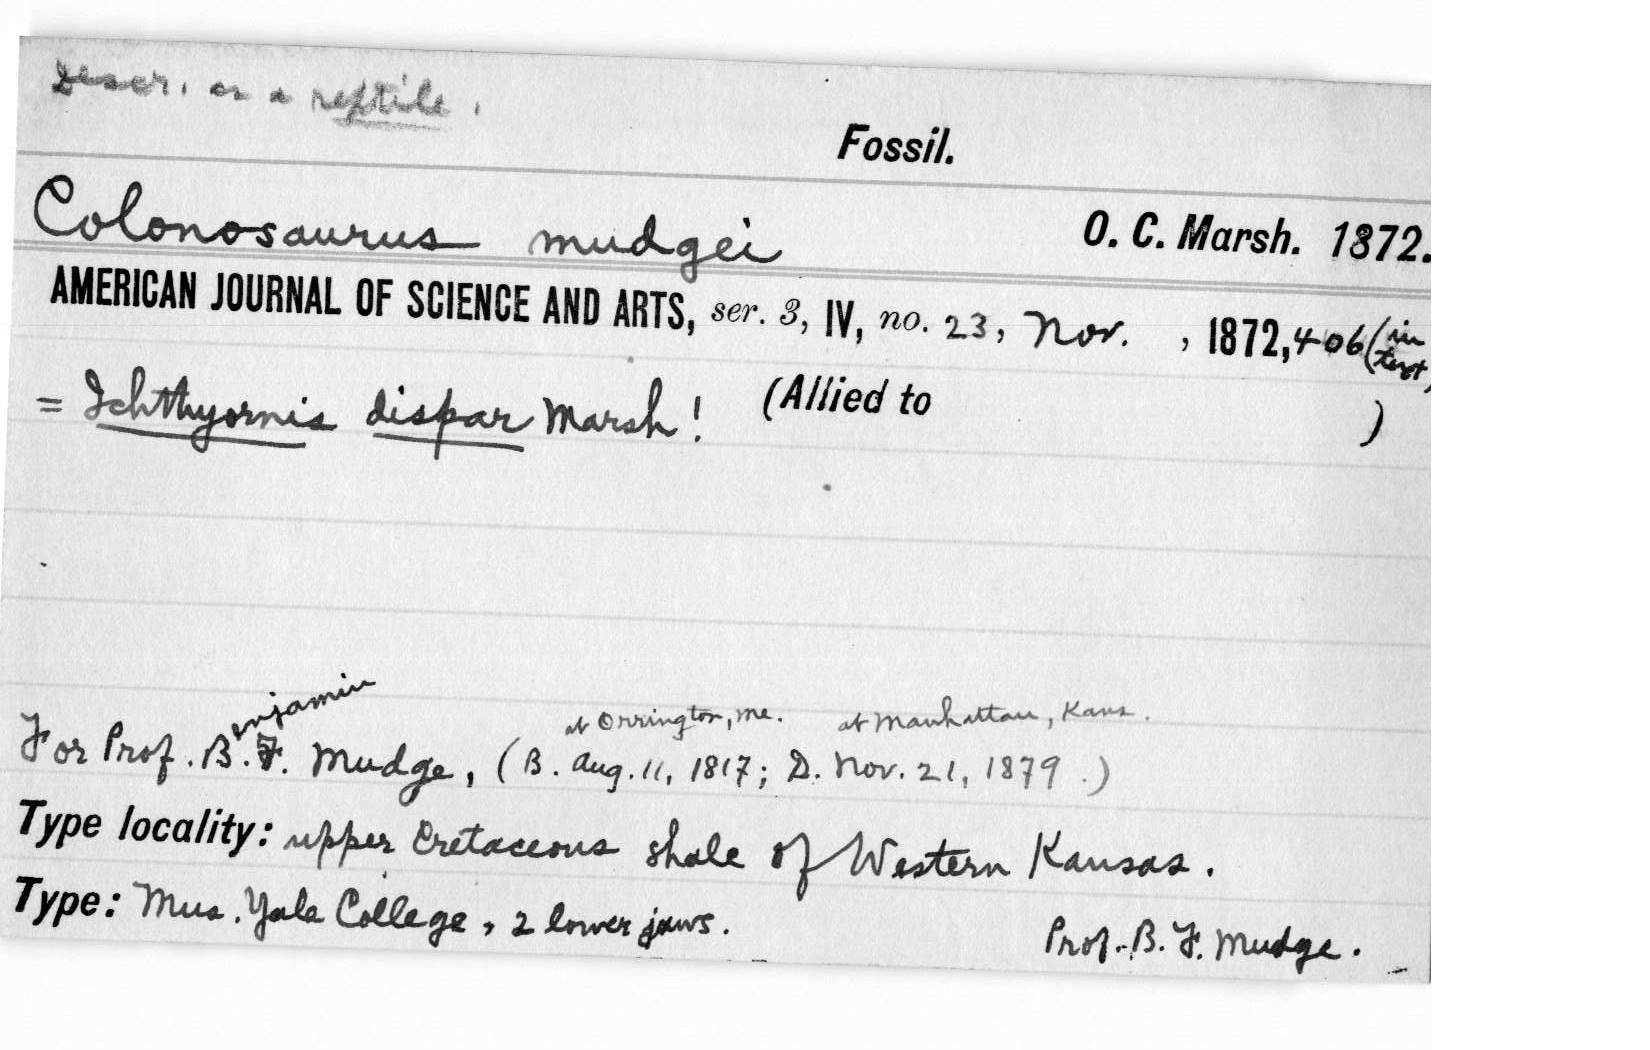 Descr. as a reptile.
Fossil.
Colonosaurus mudgei O. C. Marsh. 1872.
AMERICAN JOURNAL OF SCIENCE AND ARTS, ser. 3, IV, no. 23, Nov. , 1872, 406 (in text)
= Ichthyornis dispar Marsh! (Allied to )
enjamin
at Orrington, Me. at Manhattan, Kans.
For Prof. B. F. Mudge, (B. Aug. 11, 1817; D. Nov. 21, 1879.)
Type locality: upper Cretaceous shale of Western Kansas.
Type: Mus. Yale College, 2 lower jaws.
Prof. B. F. Mudge.